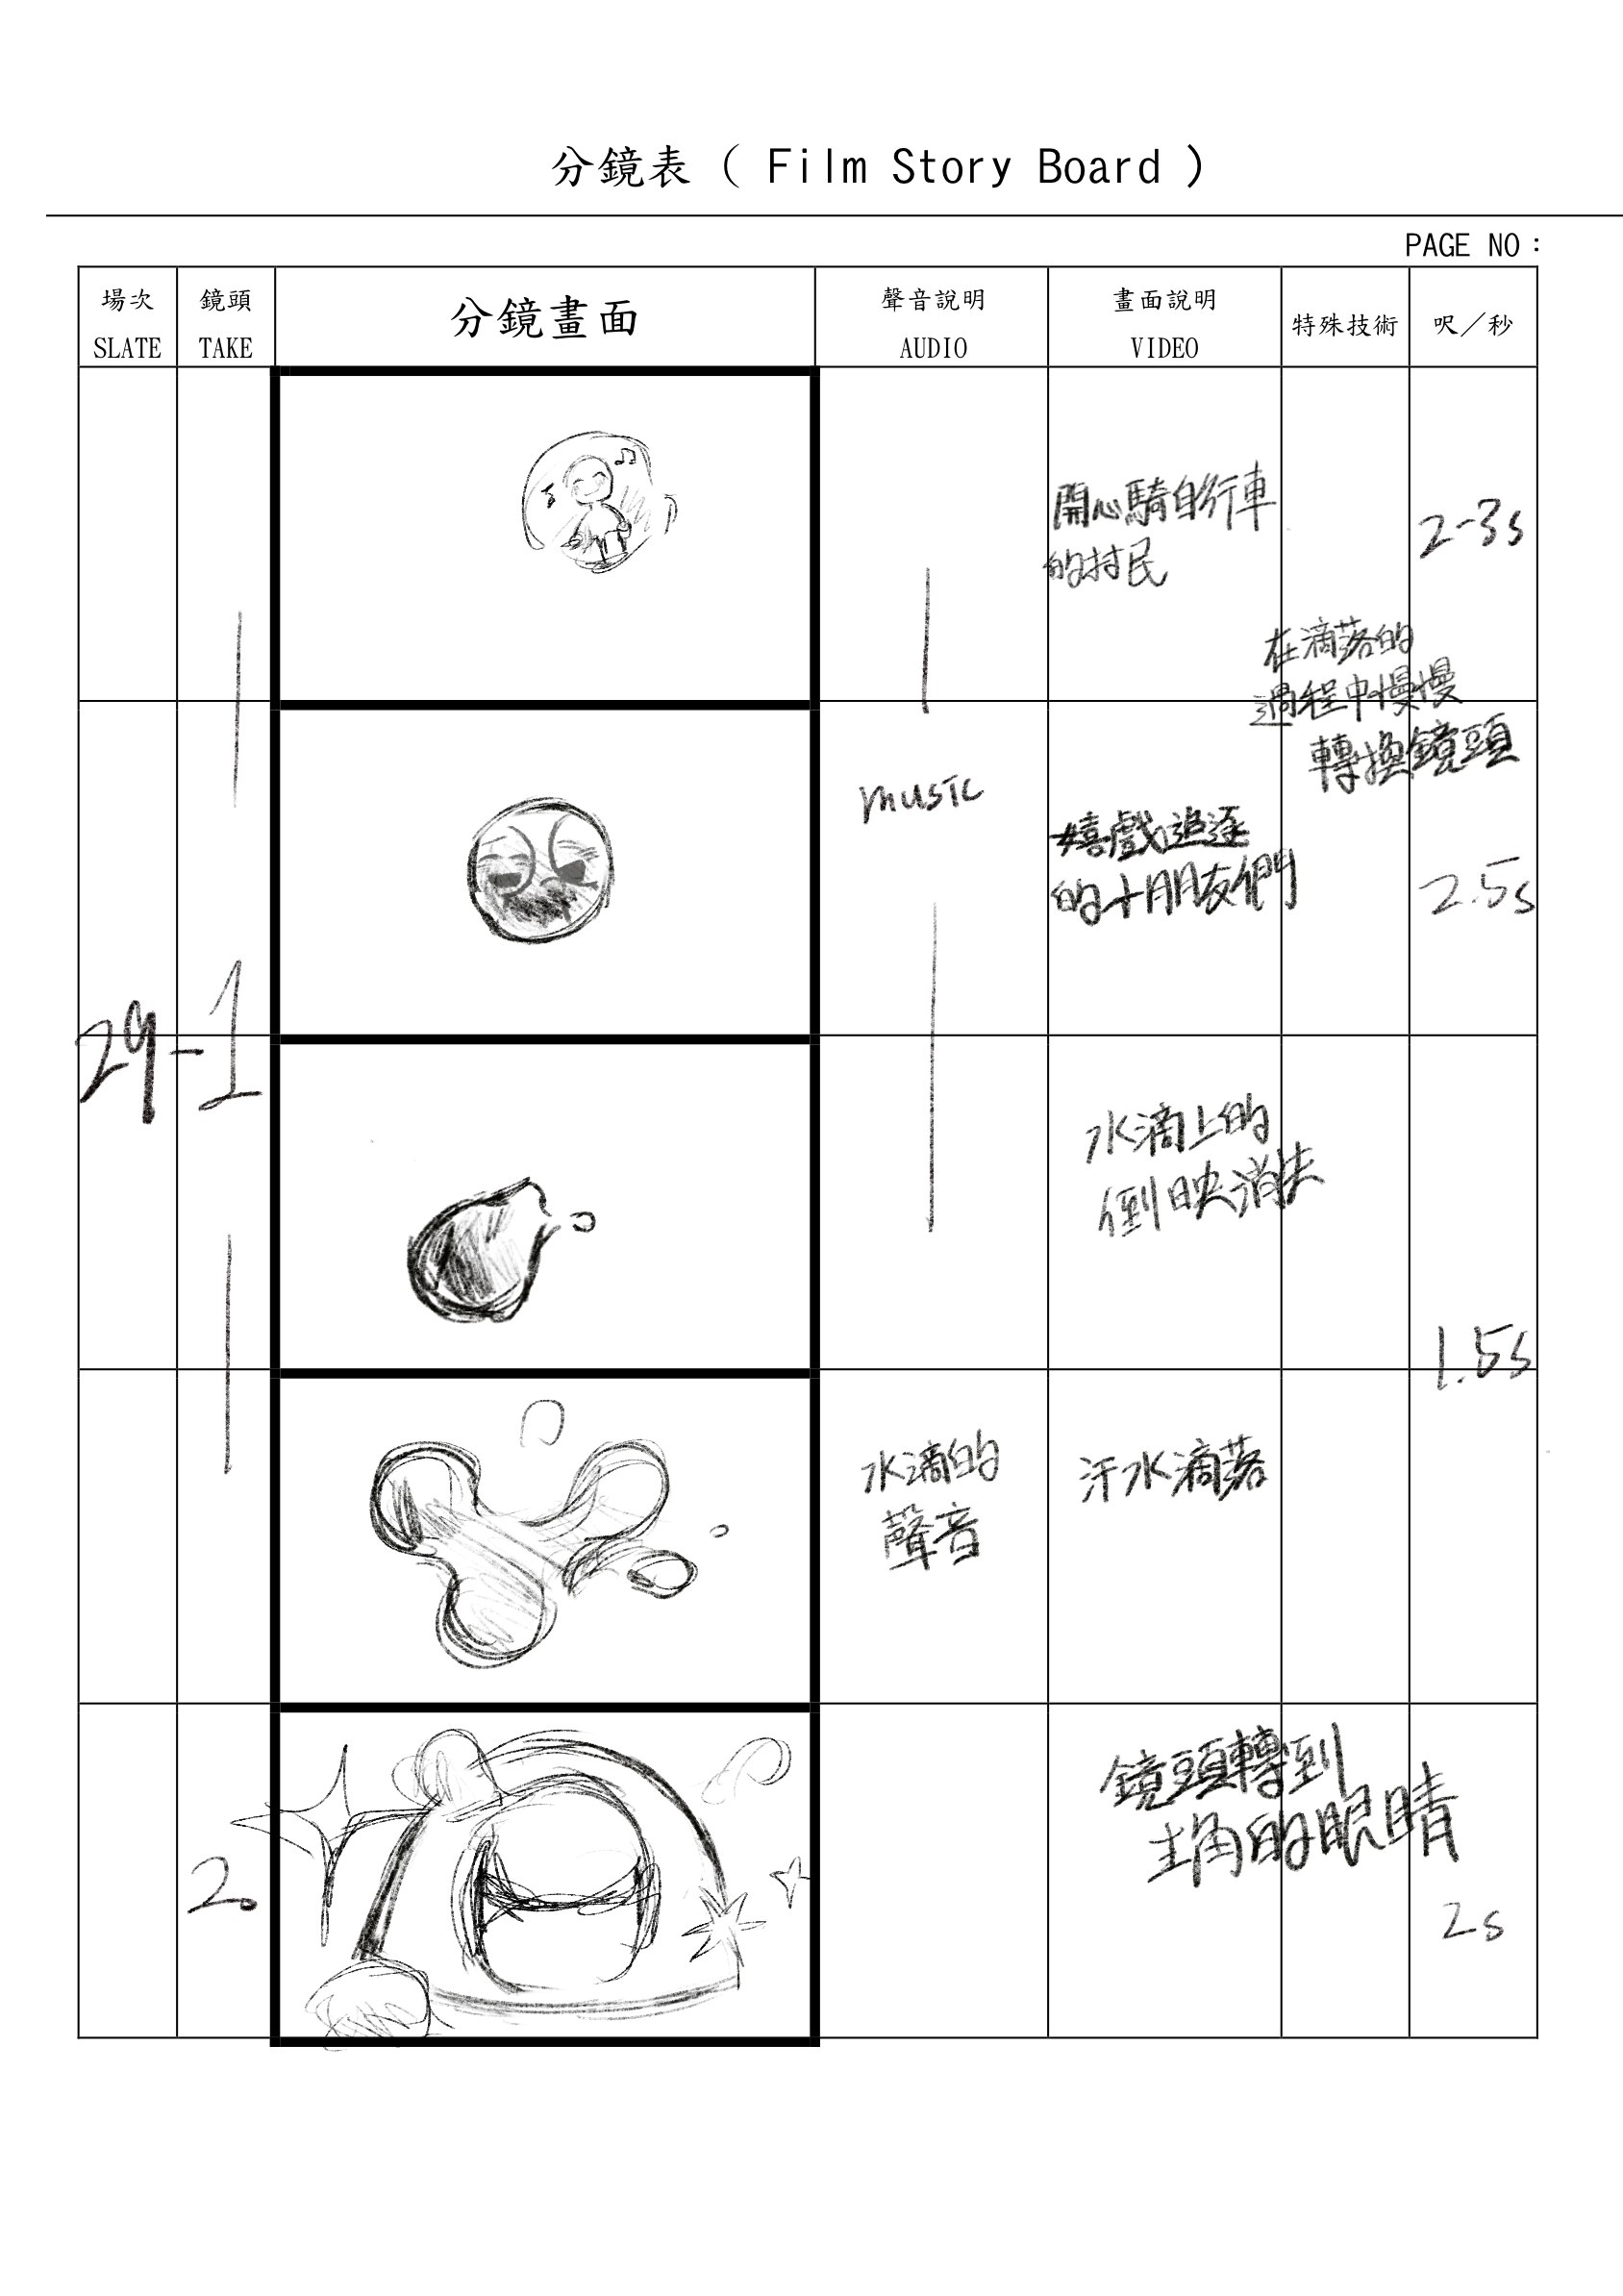 分鏡表 ( Film Story Board )
PAGE NO：
場次
SLATE
鏡頭
TAKE
分鏡畫面
聲音說明
AUDIO
畫面說明
VIDEO
特殊技術
呎／秒
開心騎自行車
的村民
2-3s
在滴落的
過程中慢慢
轉換鏡頭
music
嬉戲追逐
的小朋友們
2.5s
29-1
水滴上的
倒映消失
1.5s
水滴的
聲音
汗水滴落
2.
鏡頭轉到
主角的眼睛
2s